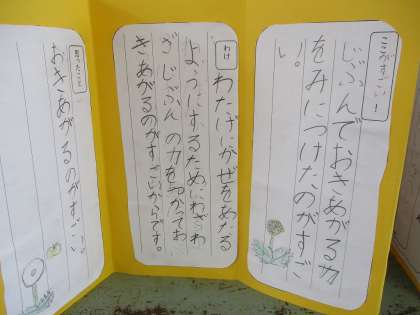 ここがすごい!
じぶんでおきあがる力
をみにつけたのがすご
い。
わけ
わたげにかぜをあたる
ようにするためにわざわ
ざじぶんの力をつかってお
きあがるのがすごいからです。
思ったこと
おきあがるのがすごい。